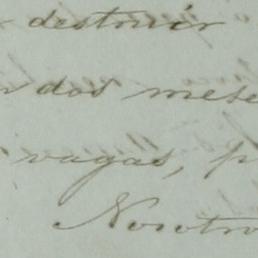 destruir
dos mese
vagas, p
Nosotro